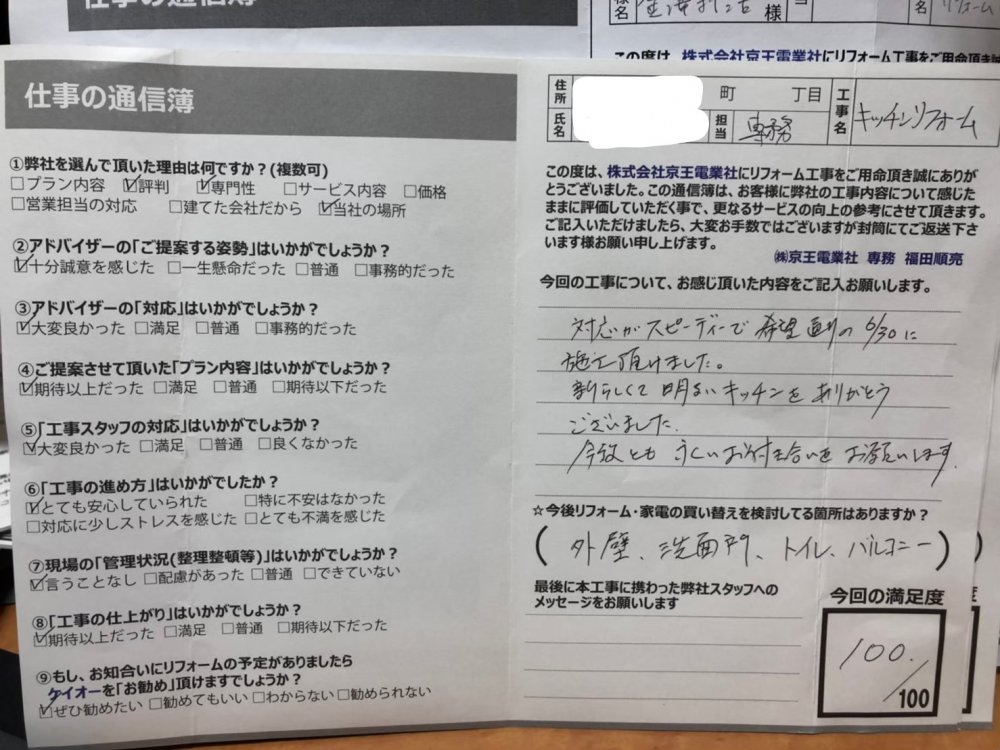 仕事の通信簿
様
名
リフォーム
この度は、株式会社京王電業社にリフォーム工事をご用命頂き誠
仕事の通信簿
①弊社を選んで頂いた理由は何ですか？(複数可)
□プラン内容 ☑評判 ☑専門性 □サービス内容 □価格
□営業担当の対応 □建てた会社だから ☑当社の場所
②アドバイザーの「ご提案する姿勢」はいかがでしょうか？
☑十分誠意を感じた □一生懸命だった □普通 □事務的だった
③アドバイザーの「対応」はいかがでしょうか？
☑大変良かった □満足 □普通 □事務的だった
④ご提案させて頂いた「プラン内容」はいかがでしょうか？
☑期待以上だった □満足 □普通 □期待以下だった
⑤「工事スタッフの対応」はいかがでしょうか？
☑大変良かった □満足 □普通 □良くなかった
⑥「工事の進め方」はいかがでしたか？
☑とても安心していられた □特に不安はなかった
□対応に少しストレスを感じた □とても不満を感じた
⑦現場の「管理状況(整理整頓等)」はいかがでしょうか？
☑言うことなし □配慮があった □普通 □できていない
⑧「工事の仕上がり」はいかがでしょうか？
☑期待以上だった □満足 □普通 □期待以下だった
⑨もし、お知合いにリフォームの予定がありましたら
ケイオーを「お勧め」頂けますでしょうか？
☑ぜひ勧めたい □勧めてもいい □わからない □勧められない
住所 町 丁目 工事名 キッチンリフォーム
氏名 担当 専務
この度は、株式会社京王電業社にリフォーム工事をご用命頂き誠にありが
とうございました。この通信簿は、お客様に弊社の工事内容について感じた
ままに評価していただく事で、更なるサービスの向上の参考にさせて頂きます。
ご記入いただけましたら、大変お手数ではございますが封筒にてご返送下さ
います様お願い申し上げます。
㈱京王電業社 専務 福田順亮
今回の工事について、お感じ頂いた内容をご記入お願いします。
対応がスピーディーで希望通りの6/30に
施工頂けました。
新らしくて明るいキッチンをありがとう
ございました。
今後とも永くお付き合いをお願いします。
☆今後リフォーム・家電の買い替えを検討してる箇所はありますか？
(外壁、洗面所、トイレ、バルコニー)
最後に本工事に携わった弊社スタッフへの
メッセージをお願いします
今回の満足度
100/100